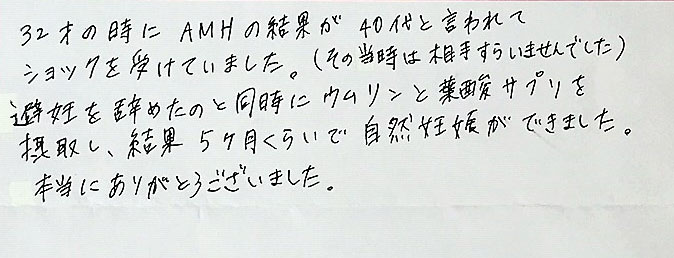 32才の時に AMHの結果が 40代と言われて
ショックを受けていました。(その当時は相手すらいませんでした)
避妊を辞めたのと同時にウムリンと葉酸サプリを
摂取し、結果 5ケ月くらいで自然妊娠ができました。
本当にありがとうございました。